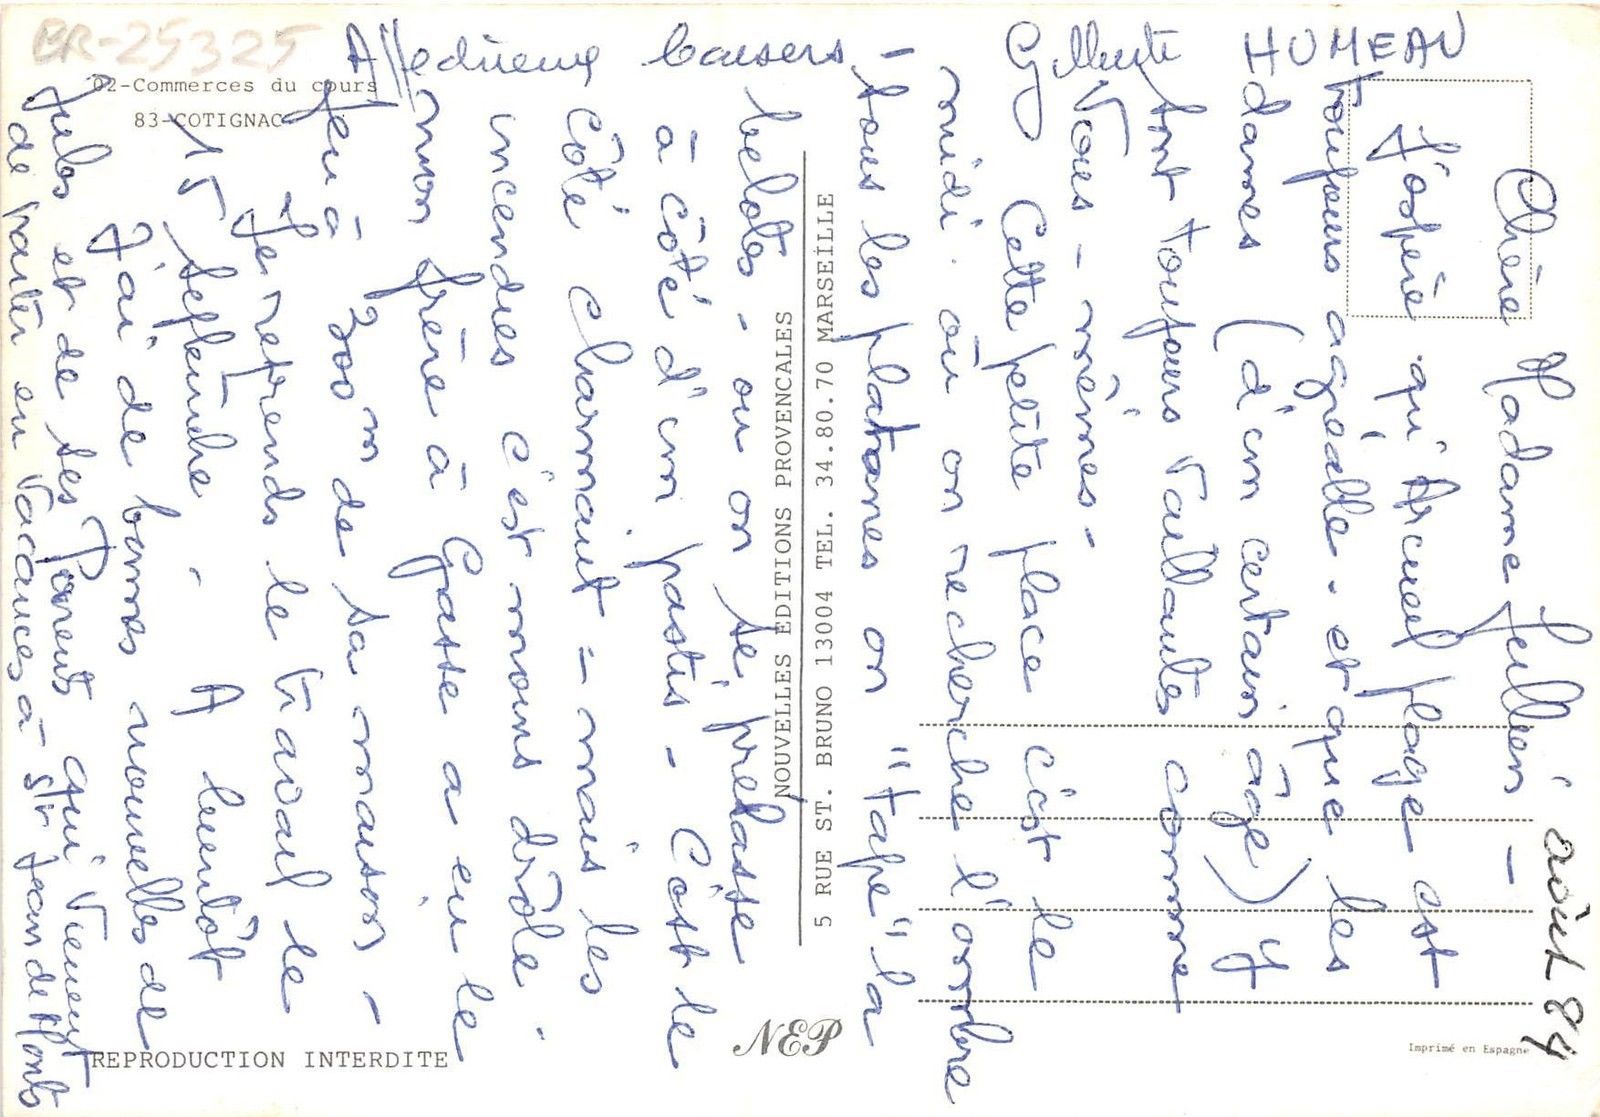 BR-25325
02-Commerces du cours
83-COTIGNAC
NOUVELLES EDITIONS PROVENCALES
5 RUE ST. BRUNO 13004 TEL. 34.80.70 MARSEILLE
NEP
REPRODUCTION INTERDITE
Imprimé en Espagne
août 84
Chère Madame Jullien -
J'espère qu'Arcueil plage est
toujours agréable - et que les
dames (d'un certain âge) y
sont toujours vaillantes comme
Vous-mêmes -
Cette petite place c'est le
midi. où on recherche l'ombre
sous les platanes on "tape" la
belote - ou on se prélasse
à côté d'un pastis - C'est le
côté charmant - mais les
incendies c'est moins drôle.
mon frère à Grasse a eu le
feu à 300 m de sa maison -
Je reprends le travail le
15 Septembre. A bientôt
J'ai de bonnes nouvelles de
Jules et de ses Parents qui viennent
de partir en vacances à St Jean de Monts
Affectueux baisers -
Gilberte HUMEAU